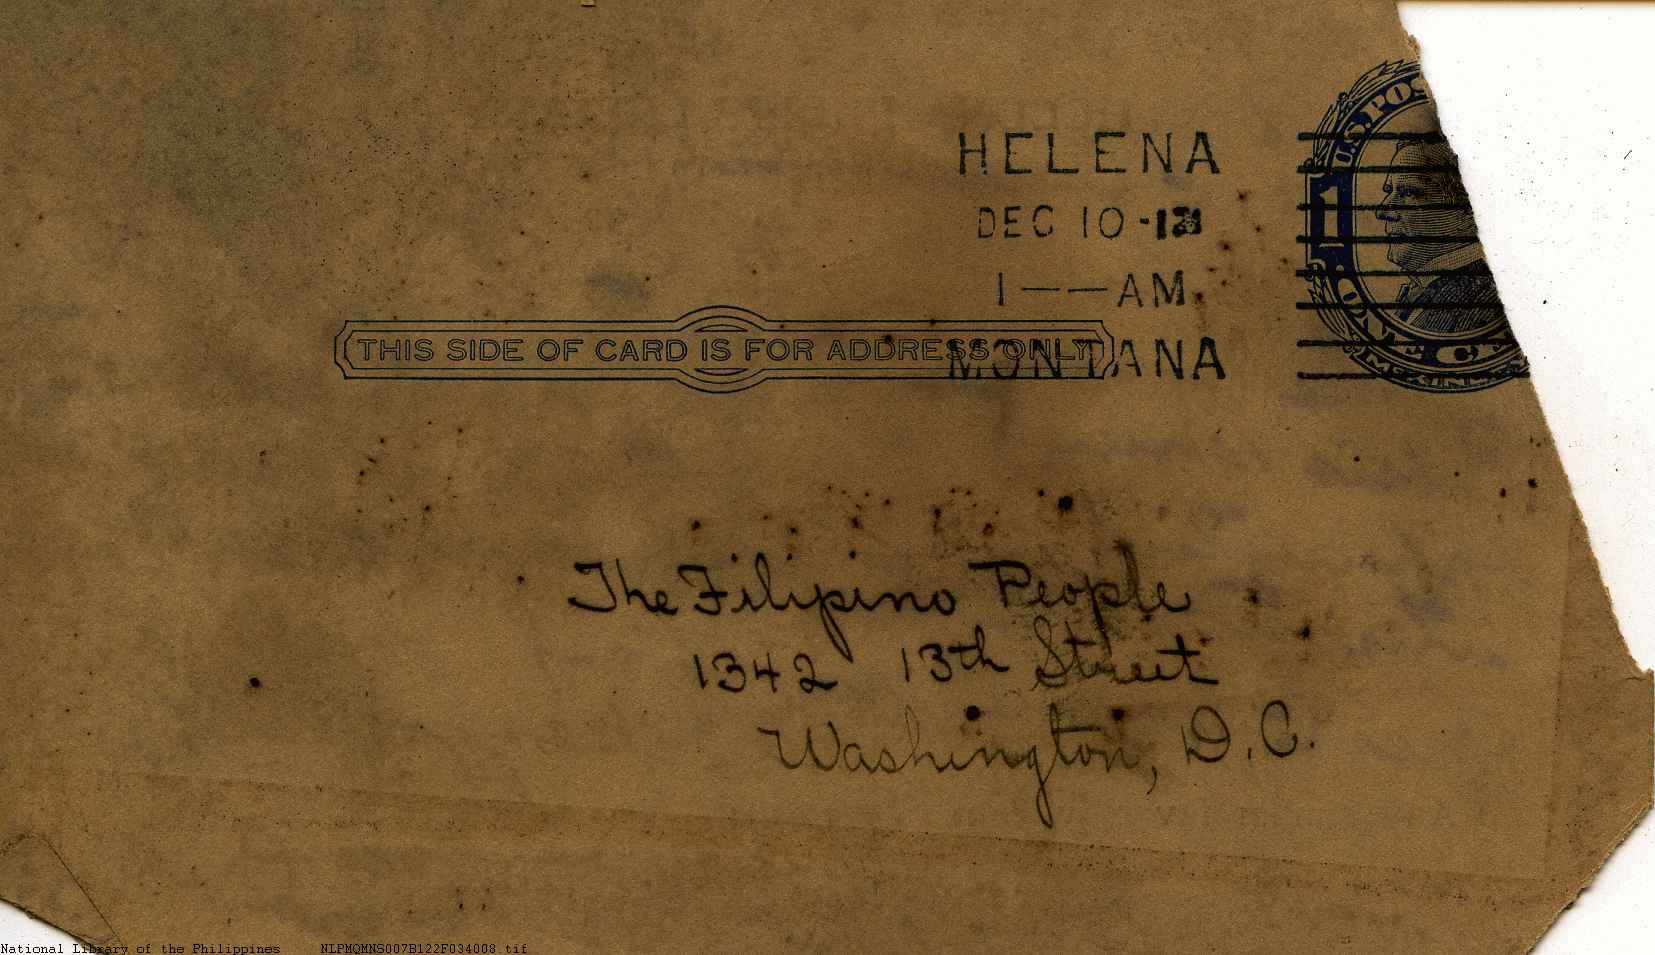 HELENA
DEC 10
1--AM
MONTANA
U.S. POS
1
ONE C
McKIN
THIS SIDE OF CARD IS FOR ADDRESS ONLY
The Filipino People
1342 13th Street
Washington, D.C.
National Library of the Philippines NLPMQMNS007B122F034008.tif